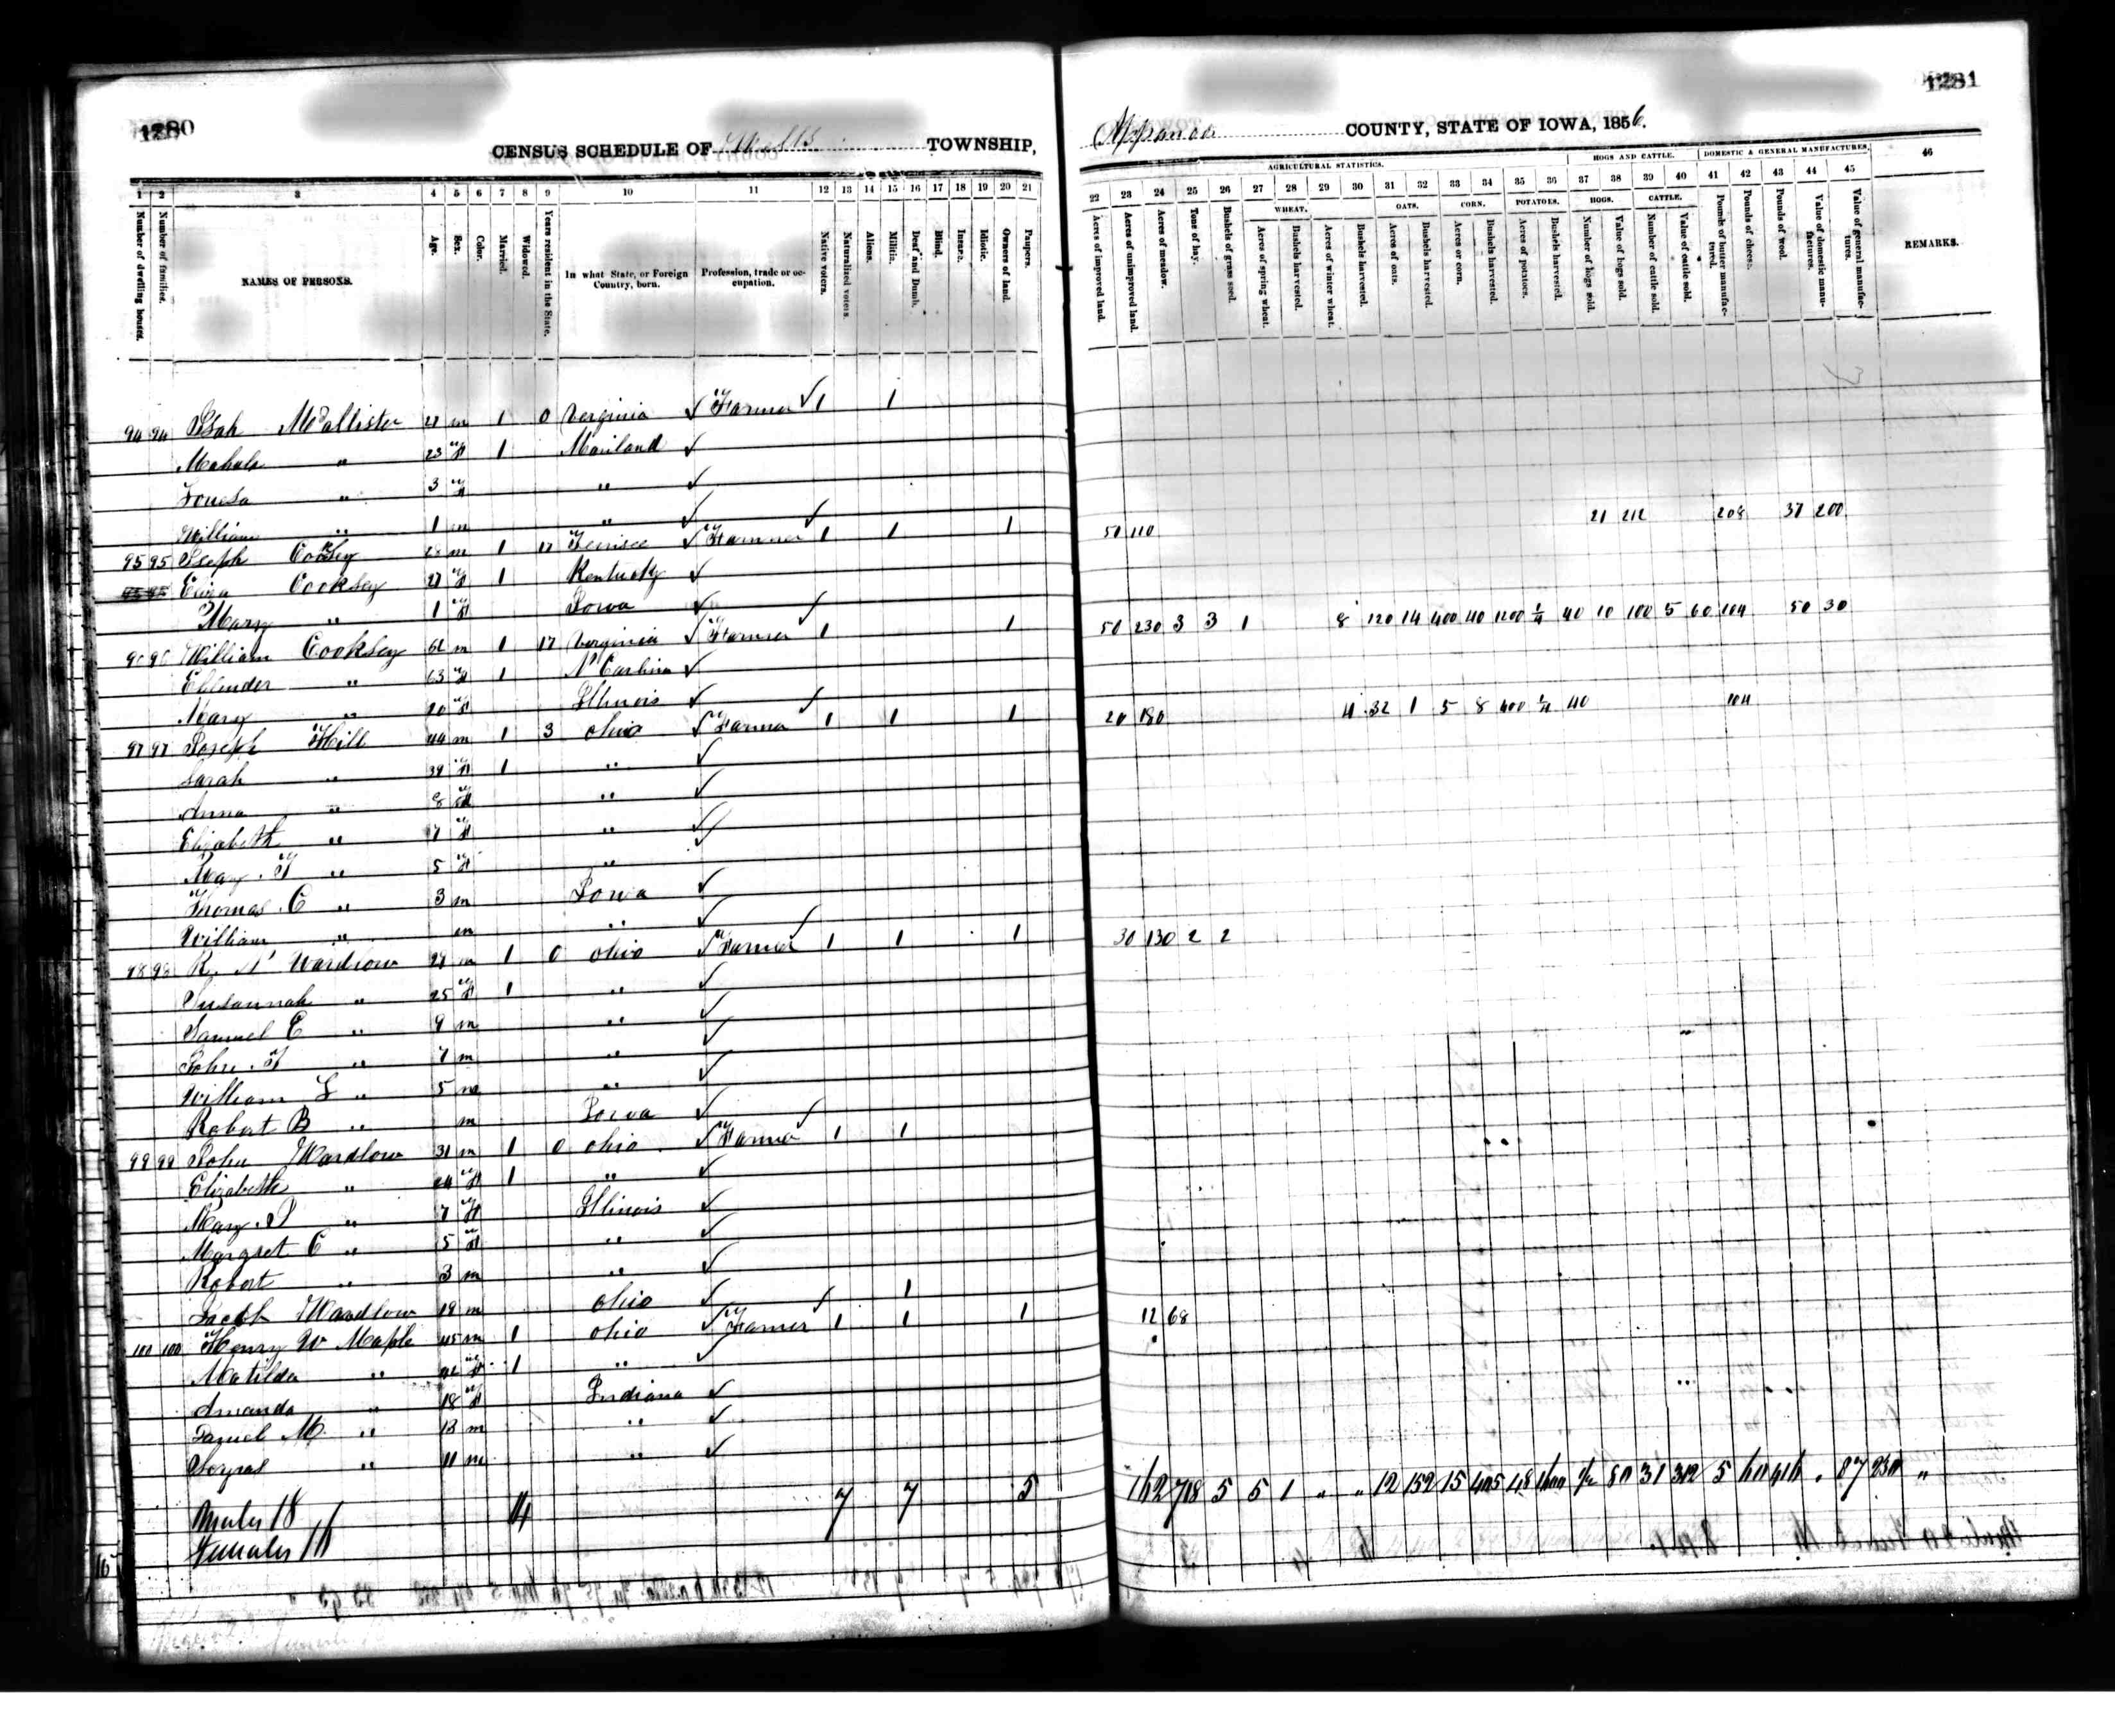 1280
CENSUS SCHEDULE OF Wells TOWNSHIP,
1 2 3 4 5 6 7 8 9 10 11 12 13 14 15 16 17 18 19 20 21
Number of dwelling houses. Number of families. NAMES OF PERSONS. Age. Sex. Color. Married. Widowed. Years resident in the State. In what State, or Foreign Country, born. Profession, trade or occupation. Native voters. Naturalized voters. Aliens. Militia. Deaf and Dumb. Blind. Insane. Idiotic. Owners of land. Paupers.
94 94 McCallister 27 m 1 0 Verginia Farmer 1 1
Mahala " 23 f 1 Mariland
Louesa " 3 f "
William " 1 m "
95 95 Cooksey 28 m 1 17 Farmer 1 1 1
Cooksey 27 f 1 Kentucky
Mary " 1 f Iowa
96 96 William Cooksey 62 m 1 17 Verginia Farmer 1 1
" 63 f 1 N Carlina
Mary " 20 f Illinois
97 97 Joseph Hill 44 m 1 3 Ohio Farmer 1 1 1
Sarah " 39 f 1 "
Anna " 8 f "
Elizabeth " 7 f "
Mary F " 5 f "
Thomas C " 3 m Iowa
William " m "
98 98 R. N Wardlow 29 m 1 0 Ohio Farmer 1 1 1
Susannah " 25 f 1 "
Samuel E " 9 m "
John F " 7 m "
William L " 5 m "
Robert B " m Iowa
99 99 John Wardlow 31 m 1 0 Ohio Farmer 1 1
Elizabeth " 24 f 1 "
Mary " 7 f Illinois
Margret C " 5 f "
Robert " 3 m "
Jacob Wardlow 19 m Ohio 1
100 100 Henry W Maple 45 m 1 Ohio Farmer 1 1 1
Matilda " 42 f 1 "
Amanda " 18 f Indiana
Samuel M " 13 m "
" 11 m "
Males 18 14 7 7 5
Females 16
1281
Appanoose COUNTY, STATE OF IOWA, 1856.
AGRICULTURAL STATISTICS. HOGS AND CATTLE. DOMESTIC & GENERAL MANUFACTURES. 46
22 23 24 25 26 27 28 29 30 31 32 33 34 35 36 37 38 39 40 41 42 43 44 45
WHEAT. OATS. CORN. POTATOES. HOGS. CATTLE.
Acres of improved land. Acres of unimproved land. Acres of meadow. Tons of hay. Bushels of grass seed. Acres of spring wheat. Bushels harvested. Acres of winter wheat. Bushels harvested. Acres of oats. Bushels harvested. Acres or corn. Bushels harvested. Acres of potatoes. Bushels harvested. Number of hogs sold. Value of hogs sold. Number of cattle sold. Value of cattle sold. Pounds of butter manufactured. Pounds of cheese. Pounds of wool. Value of domestic manufactures. Value of general manufactures. REMARKS.
50 110 21 212 208 37 200
50 230 3 3 1 8 120 14 400 40 1200 1/4 40 10 100 5 60 104 50 30
20 180 4 32 1 5 8 400 1/4 40 104
30 130 2 2
12 68
162 718 5 5 1 " " 12 152 15 405 48 1600 1/2 80 31 312 5 60 416 . 87 230 "